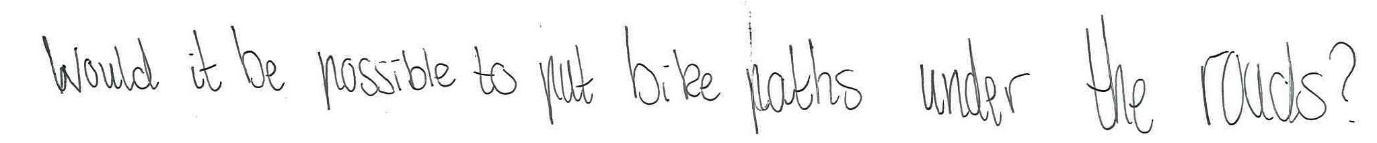 Would it be possible to put bike paths under the roads?